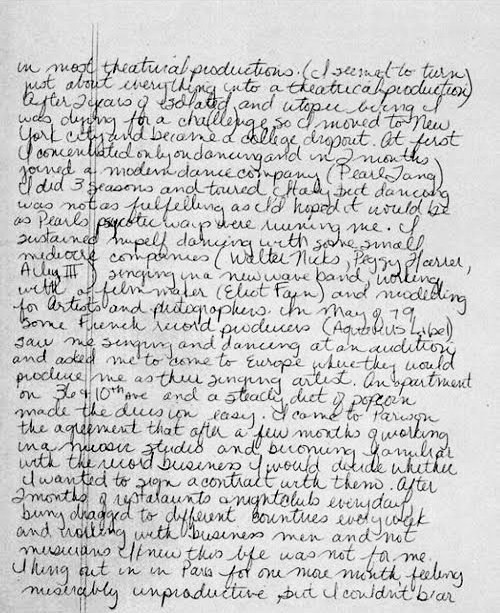 in most theatrical productions. (I seem to turn
just about everything into a theatrical production)
After 2 years of isolated and utopic being I
was dying for a challenge so I moved to New
York City and became a college dropout. At first
I concentrated only on dancing and in 2 months
joined a modern dance company (Pearl Lang)
I did 3 seasons and toured Italy but dancing
was not as fulfelling as I'd hoped it would be
as Pearls psycotic ways were ruining me. I
sustained myself dancing with some small
mediocre companies (Walter Nicks, Peggy Harrer,
Ailey III) singing in a new wave band, working
with a film maker (Eliot Fain) and modelling
for Artists and photographers. In May of 79
some French record producers (Aquarius Libel)
saw me singing and dancing at an audition
and asked me to come to Europe where they would
produce me as their singing artist. An apartment
on 36 & 10th Ave and a steady diet of popcorn
made the decision easy. I came to Paris on
the agreement that after a few months of working
in a music studio and becoming familiar
with the record business I would decide whether
I wanted to sign a contract with them. After
2 months of restaraunts & nightclubs everyday,
being dragged to different countries every week
and working with business men and not
musicians I knew this life was not for me.
I hung out in in Paris for one more month feeling
miserably unproductive, but I couldn't bear